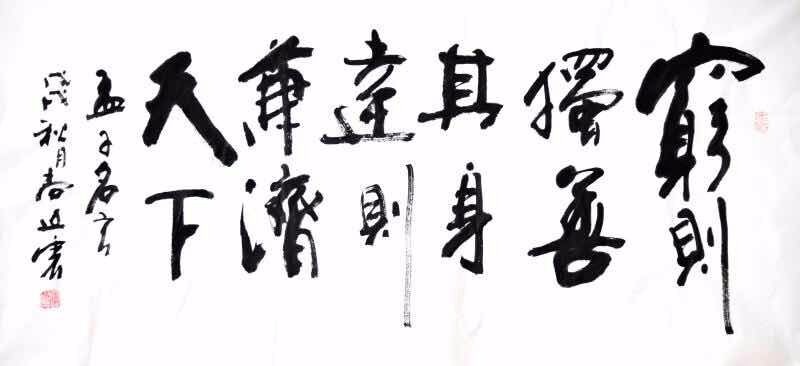 窮則
獨善
其身
達則
兼濟
天下
孟子名言
戊戌秋月